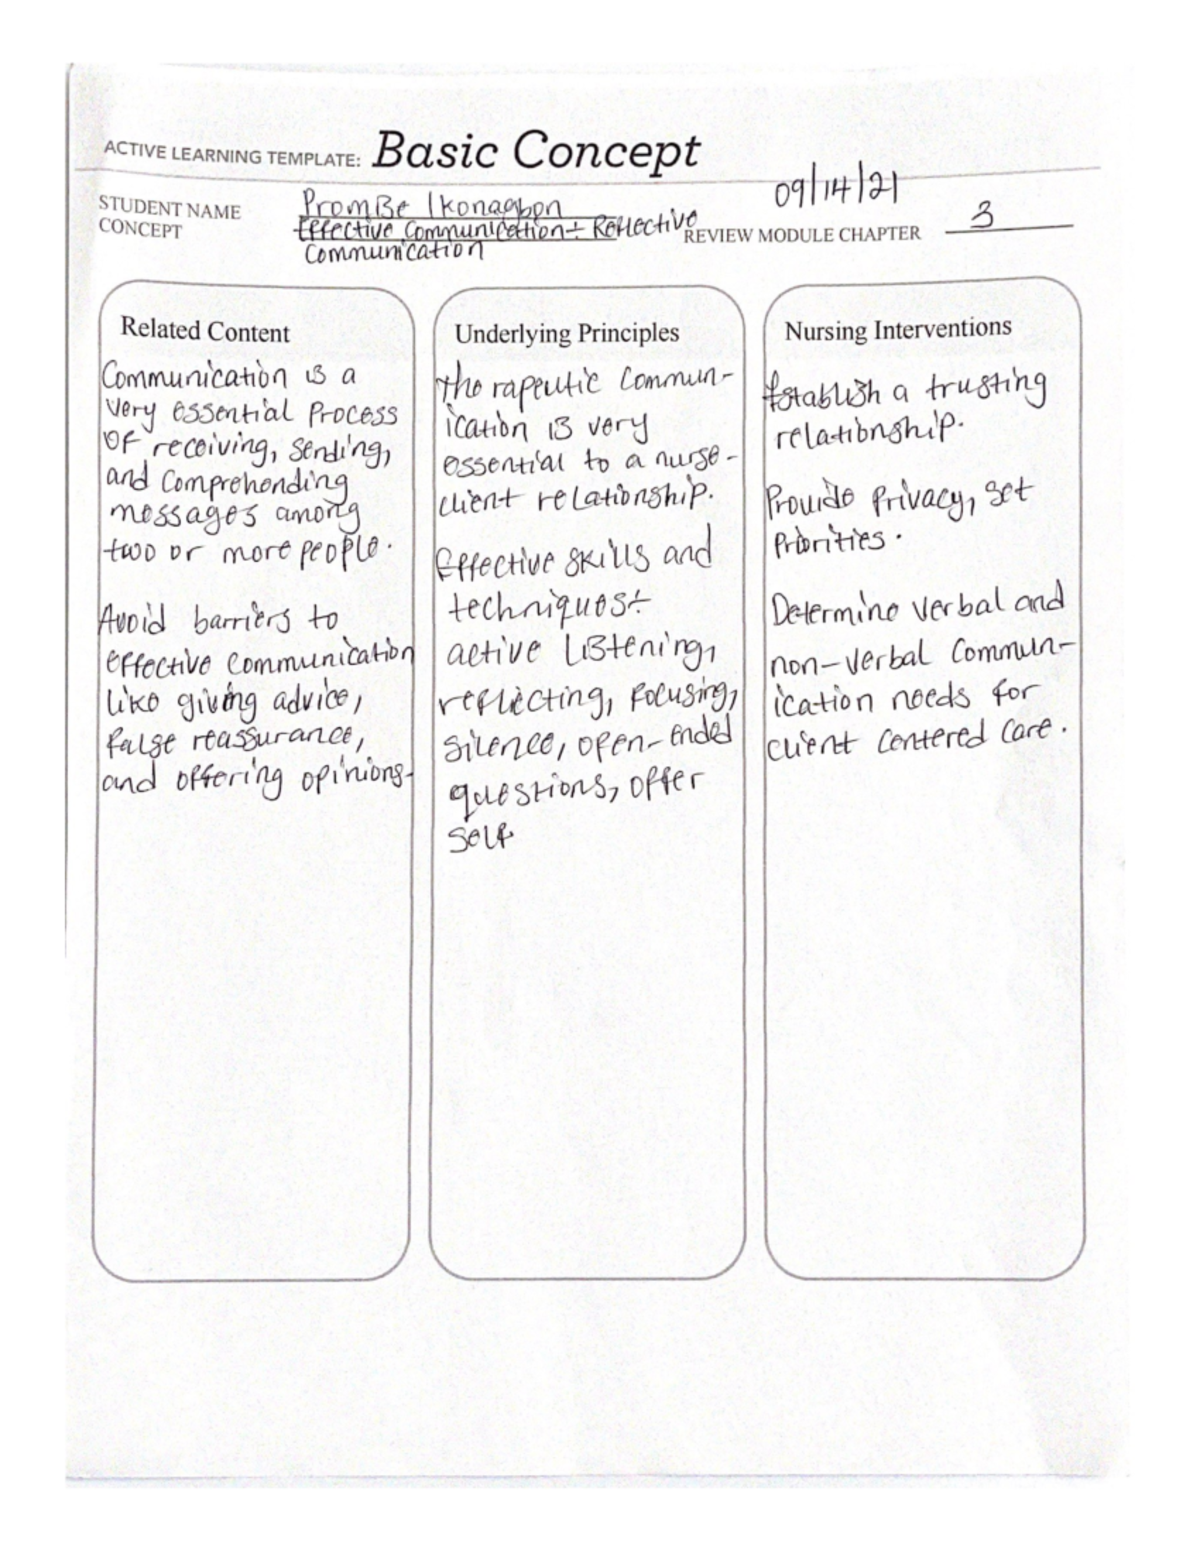 ACTIVE LEARNING TEMPLATE: Basic Concept
09/14/21
STUDENT NAME PromBe Ikonagbon
CONCEPT Effective Communication:- Reflective
Communication
REVIEW MODULE CHAPTER 3
Related Content
Communication is a
very essential Process
of receiving, sending,
and Comprehending
messages among
two or more people.
Avoid barriers to
effective communication
like giving advice,
false reassurance,
and offering opinions.
Underlying Principles
therapeutic Commun-
ication is very
essential to a nurse-
client relationship.
Effective skills and
techniques:-
active Listening,
reflecting, focusing,
silence, open-ended
questions, offer
self.
Nursing Interventions
Establish a trusting
relationship.
Provide privacy, set
Priorities.
Determine verbal and
non-verbal Commun-
ication needs for
client centered care.